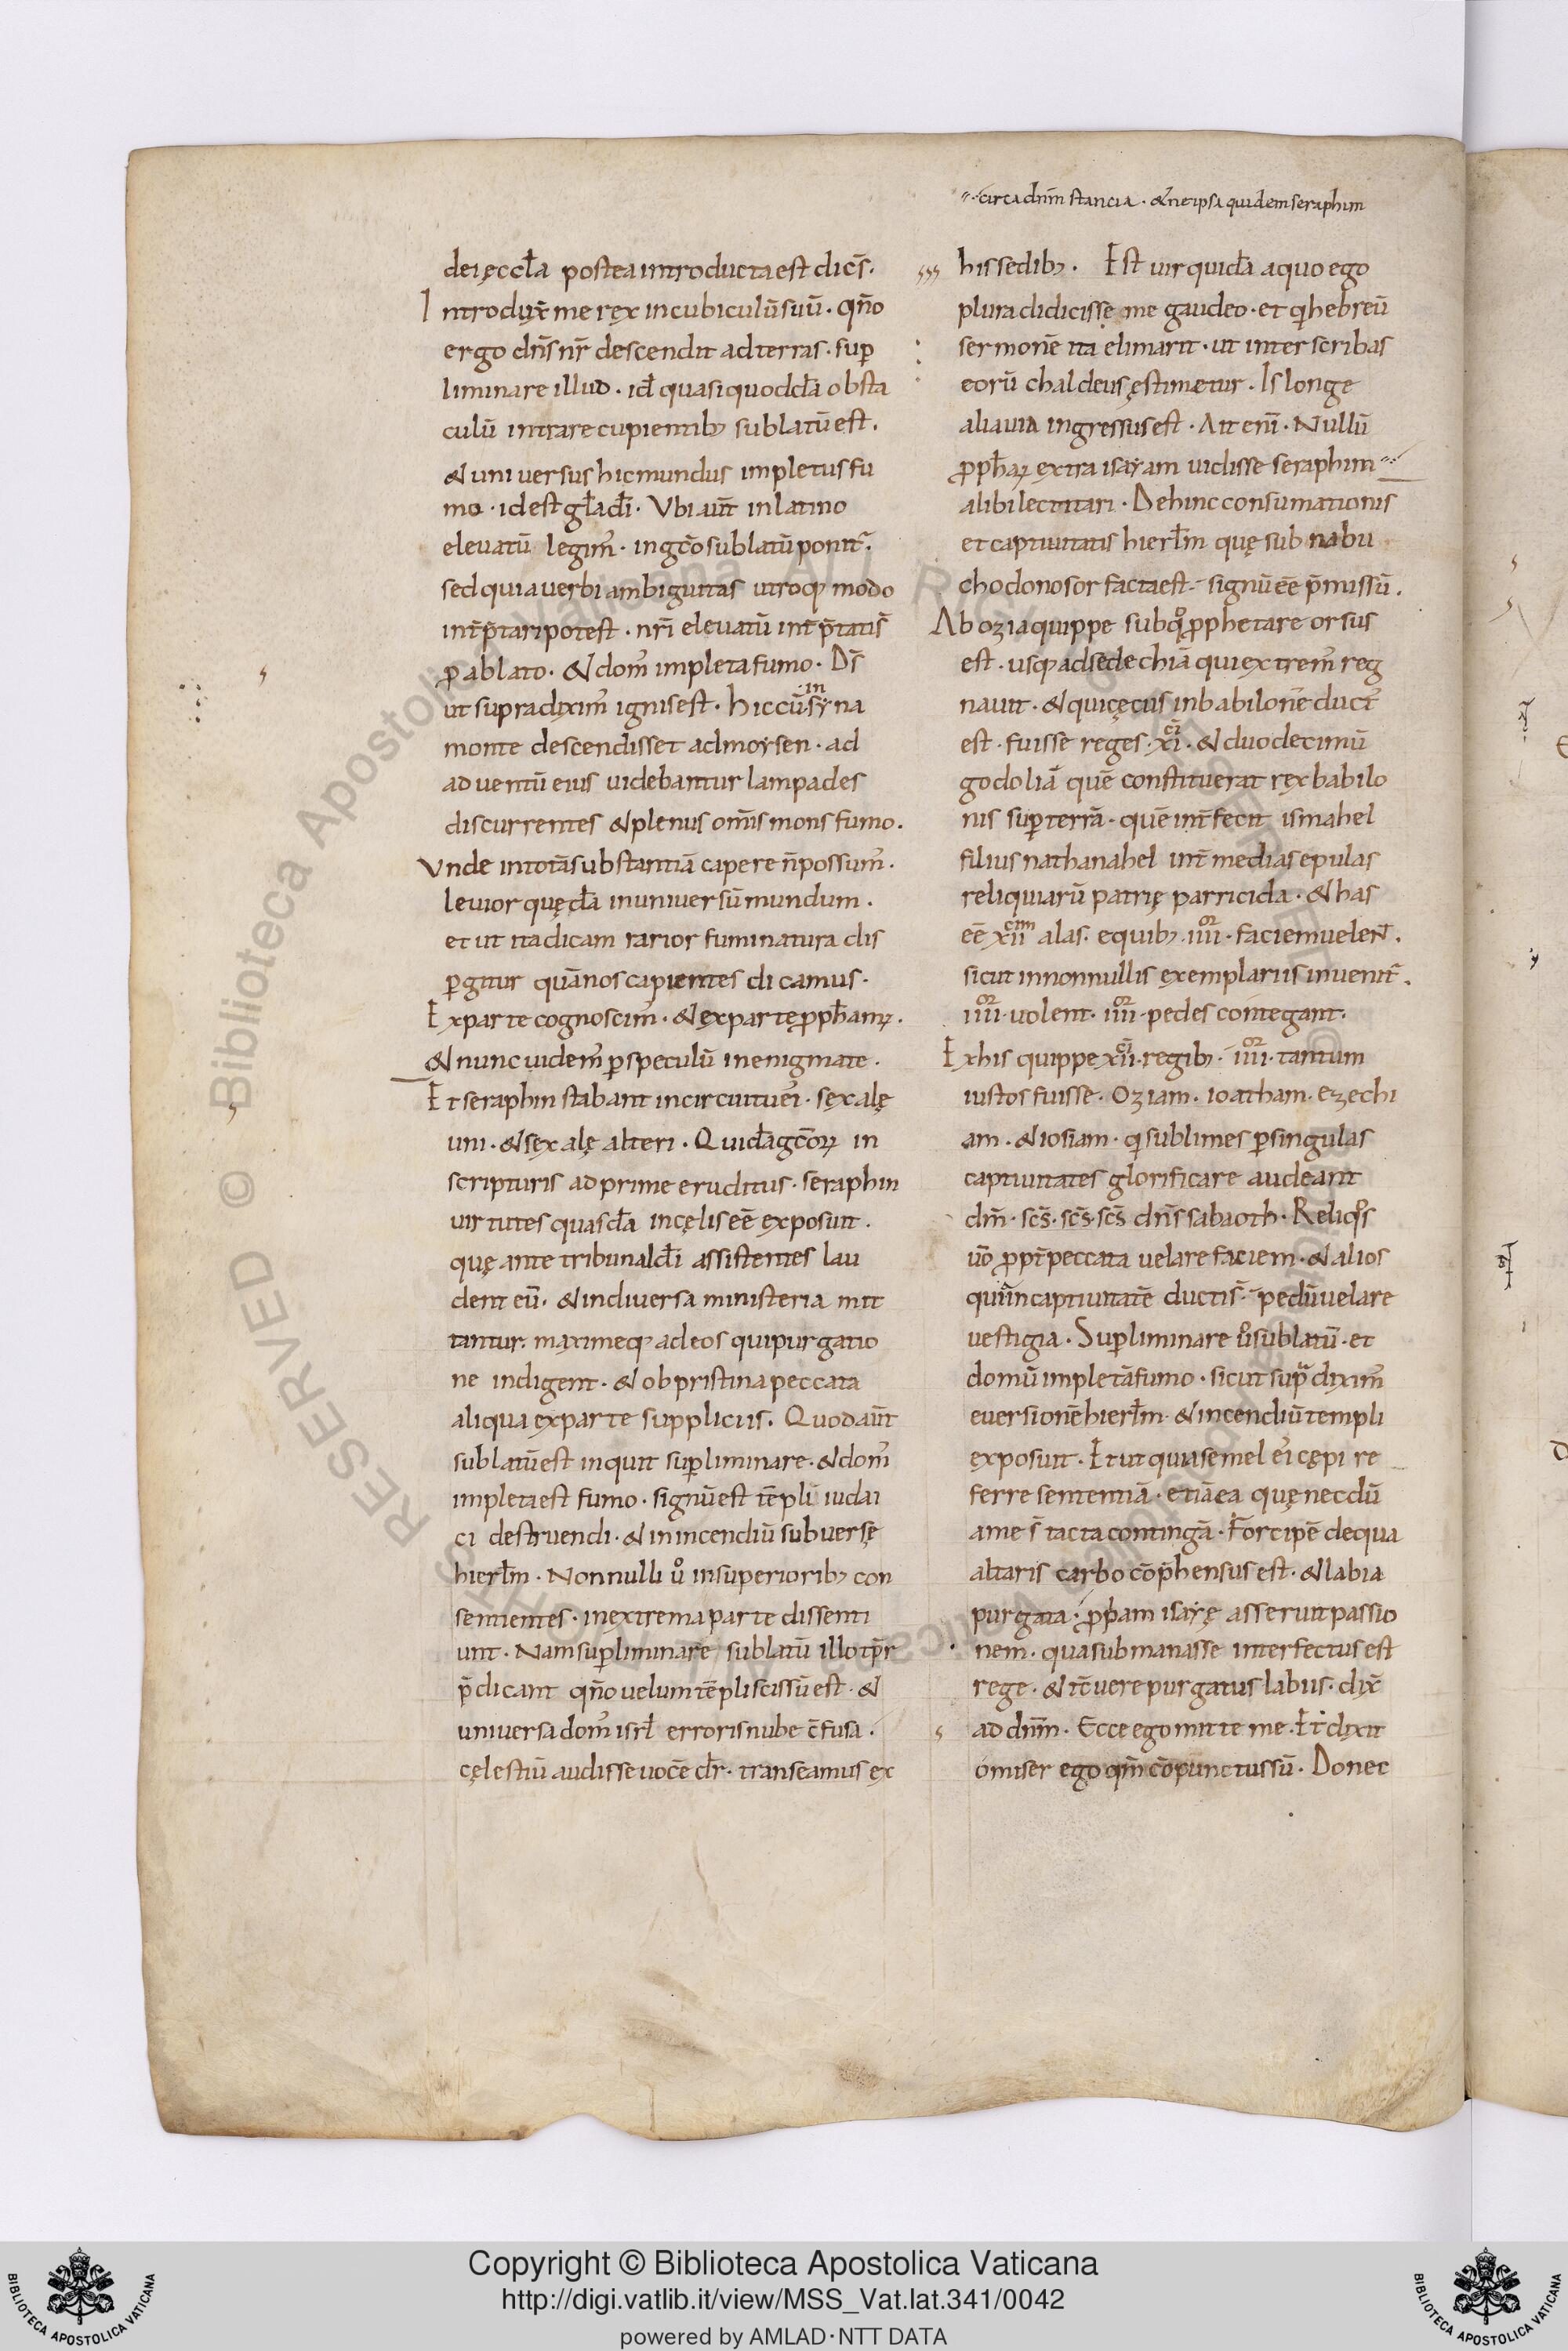 ·circa dnm̄ stancia · & ne ipsa quidem seraphim
dei ęccła postea introducta est dics̄.
Introdux̄ me rex in cubiculū suū · qn̄o
ergo dn̄s nr̄ descendit ad terras · suꝑ
liminare illud · id ÷ quasi quoddā obsta
culū intrare cupientibꝫ sublatū est.
& universus hic mundus impletus fu
mo · id est gła dī · Ubi aut̄ in latino
elevatū legim᷒ · in gc̄o sublatū ponit᷑.
sed quia verbi ambiguitas utroqꝫ modo
int̄p̄tari potest · nr̄i elevatū int̄p̄tatis̄
ꝓ ablato · & dom᷒ impleta fumo · Ds̄
ut supra dixim᷒ ignis est · hic cū in syna
monte descendisset ad moysen · ad
adventū eius videbantur lampades
discurrentes & plenus om̄is mons fumo.
Unde in totā substantiā capere n̄ possum᷒.
levior quędā in universū mundum.
et ut ita dicam rarior fumi natura dis
ꝑgitur quā nos capientes dicamus.
Ex parte cognoscim᷒ · & ex parte ꝓphamꝰ.
& nunc videm᷒ ꝑ speculū in enigmate.
Et seraphin stabant in circuitu ei᷒ · sex alę
uni · & sex alę alteri · Quidā gc̄oꝝ in
scripturis adprime eruditus · seraphin
virtutes quasdā in cęlis eē exposuit.
quę ante tribunal dī assistentes lau
dent eū · & in diversa ministeria mit
tantur · maximeqꝫ ad eos qui purgatio
ne indigent · & ob pristina peccata
aliqua ex parte suppliciis. Quod aut̄
sublatū est inquit suꝑliminare · & dom᷒
impleta est fumo · signū est tēpli iudai
ci destruendi · & in incendiū subversę
hierłm · Nonnulli v̊ in superioribꝫ con
sentientes · in extrema parte dissenti
unt · Nam suꝑliminare sublatū illo tp̄r
p̄dicant qn̄o velum tēpli scissū est · &
universa dom᷒ isrł erroris nube c̄fusa.
cęlestiū audisse vocē dr̄ · transeamus ex
his sedibꝫ. Est vir quidā a quo ego
plura didicisse me gaudeo · et qi hebreū
sermonē ita elimarit · ut inter scribas
eorū chaldeus ęstimetur. Is longe
alia via ingressus est · Ait eni᷒ · Nullū
ꝓphaꝝ extra isayam vidisse seraphim
alibi lectitari · Dehinc consumationis
et captivitatis hierłm quę sub nabu
chodonosor facta est · signū eē p̄missū.
Ab ozia quippe sub qo ꝓphetare orsus
est · usqꝫ ad sedechiā qui extrem᷒ reg
navit · & qui cęcus in babilonē duct᷒
est · fuisse reges · xi · & duodecimū
godoliā quē constituerat rex babilo
nis suꝑ terrā · quē int̄fecit ismahel
filius nathanahel int̄ medias epulas
reliquiarū patrię parricida · & has
eē xii cim alas · e quibꝫ · iiii or · faciem velen̄t.
sicut in nonnullis exemplariis invenit᷑.
iiii or · volent · iiii or · pedes contegant.
Ex his quippe xii ci · regibꝫ · iiii or · tantum
iustos fuisse · Oziam · ioatham · ezechi
am · & iosiam · qi sublimes ꝑ singulas
captivitates glorificare audeant
dm̄ · scs̄ · scs̄ · scs̄ dn̄s sabaoth · Reliqos
v̄o ꝓpt̄ peccata velare faciem · & alios
quia in captivitatē ductis̄ · pedū velare
vestigia · Suꝑliminare v̊ sublatū · et
domū impletā fumo · sicut supa dixim᷒
eversionē hierłm · & incendiū templi
exposuit · Et ut quia semel ei᷒ cępi re
ferre sententiā · etiā ea quę necdū
a me s̄ tacta contingā · Forcipē de qua
altaris carbo cōp̄hensus est · & labia
purgata · ꝓpham isayę asseruit passio
nem · qua sub manasse interfectus est
rege · & tē vere purgatus labiis · dix̄
ad dnm̄ · Ecce ego mitte me · Et dixit
o miser ego qm̄ cōpunctus sū · Donec
Copyright © Biblioteca Apostolica Vaticana
http://digi.vatlib.it/view/MSS_Vat.lat.341/0042
powered by AMLAD·NTT DATA